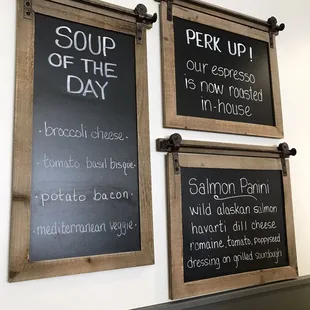 SOUP
OF THE
DAY
· broccoli cheese ·
· tomato basil bisque ·
· potato bacon ·
· mediterranean veggie ·
PERK UP!
our espresso
is now roasted
in-house
Salmon Panini
wild alaskan salmon
havarti dill cheese
romaine, tomato, poppyseed
dressing on grilled sourdough